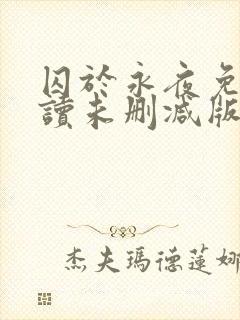 囚於永夜免
讀未刪減版
杰夫瑪德蓮娜